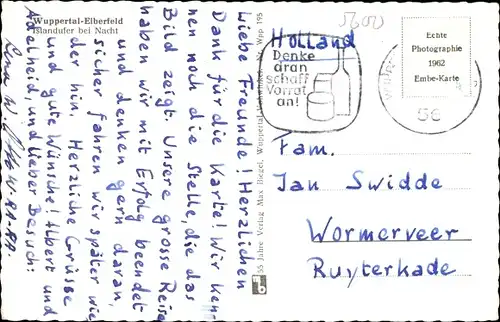 Wuppertal-Elberfeld
Islandufer bei Nacht
Liebe Freunde! Herzlichen
Dank für die Karte! Wir ken-
nen noch die Stelle, die das
Bild zeigt. Unsere grosse Reise
haben wir mit Erfolg beendet
und denken gern daran,
sicher fahren wir später wie
der hin. Herzliche Grüsse
und gute Wünsche! Albert und
Adelheid, und lieber Besuch:
55 Jahre Verlag Max Biegel, Wuppertal
Nr. Wpp 195
Holland
Denke
dran
schaff
Vorrat
an!
Echte
Photographie
1962
Embe-Karte
56
Fam.
Jan Swidde
Wormerveer
Ruyterkade